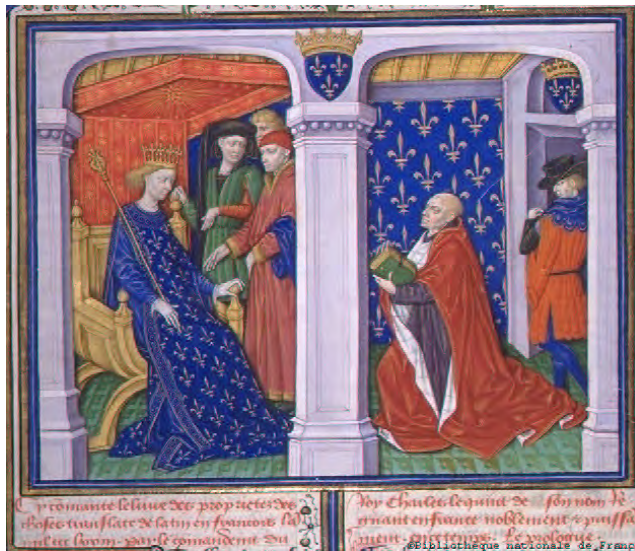 Cy commance le livre des proprietes des
choses translate de latin en francois
par le comandement du
Roy Charles le quint de son nom
regnant en france noblement et puissa
ment Le prologue
©Bibliothèque nationale de France